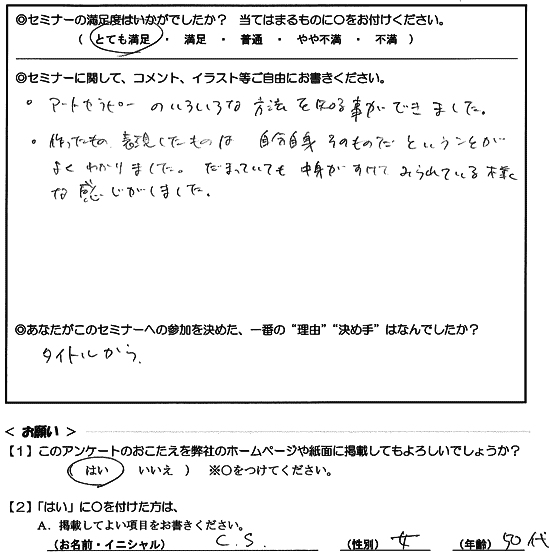 ◎セミナーの満足度はいかがでしたか？ 当てはまるものに○をお付けください。
（ とても満足 ・ 満足 ・ 普通 ・ やや不満 ・ 不満 ）
◎セミナーに関して、コメント、イラスト等ご自由にお書きください。
・ アートセラピーのいろいろな方法を知る事ができました。
・ 作ったもの 表現したものは 自分自身そのものだということが
よくわかりました。 だまっていても中身がすけてみられている様
な感じがしました。
◎あなたがこのセミナーへの参加を決めた、一番の“理由”“決め手”はなんでしたか？
タイトルから、
＜ お願い ＞
【１】このアンケートのおこたえを弊社のホームページや紙面に掲載してもよろしいでしょうか？
（ はい いいえ ） ※○をつけてください。
【２】「はい」に○を付けた方は、
Ａ．掲載してよい項目をお書きください。
（お名前・イニシャル） C．S． （性別） 女 （年齢） 50代